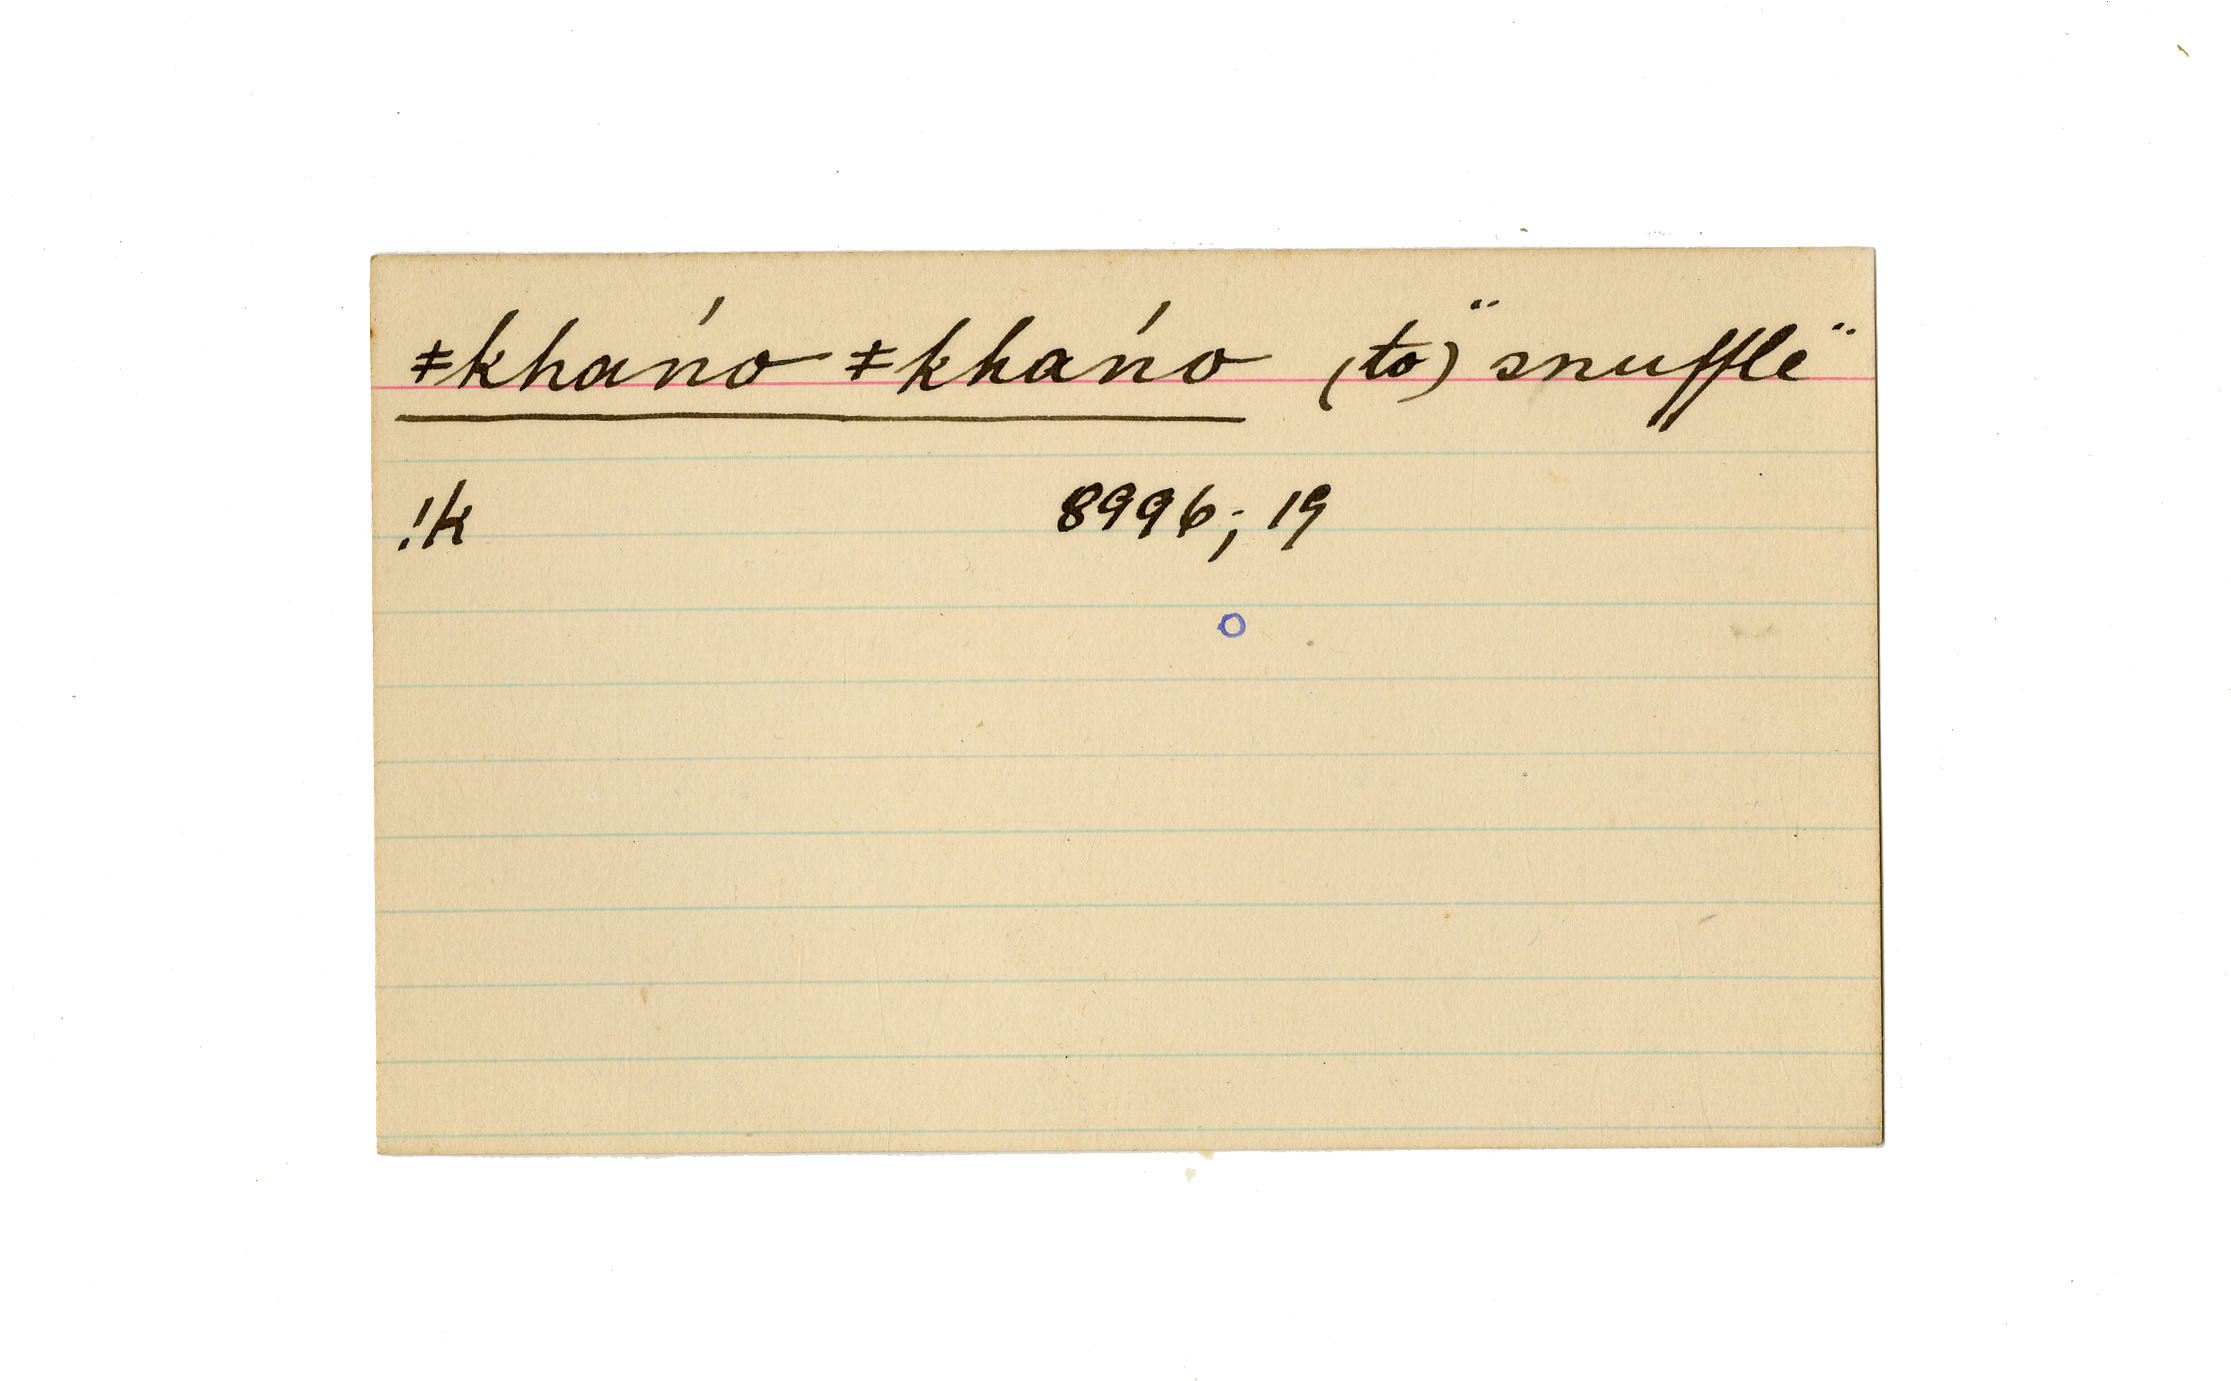 ǂkhańo ǂkhańo (to) "snuffle"
!k 8996; 19